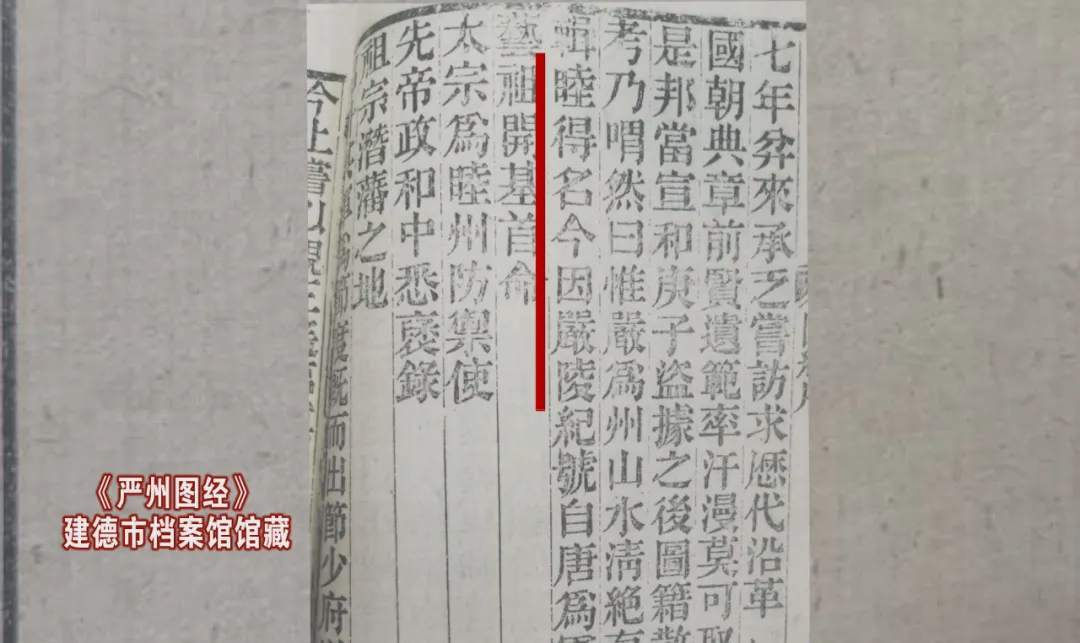 七年弅來承乏嘗訪求歷代沿革
國朝典章前賢遺範率汗漫莫可取
是邦當宣和庚子盜據之後圖籍散
考乃喟然曰惟嚴爲州山水淸絶有
輯睦得名今因嚴陵紀號自唐爲軍
藝祖開基首命
太宗爲睦州防禦使
先帝政和中悉褒錄
祖宗潛藩之地
節度旣而出節少府
今上
《严州图经》
建德市档案馆馆藏